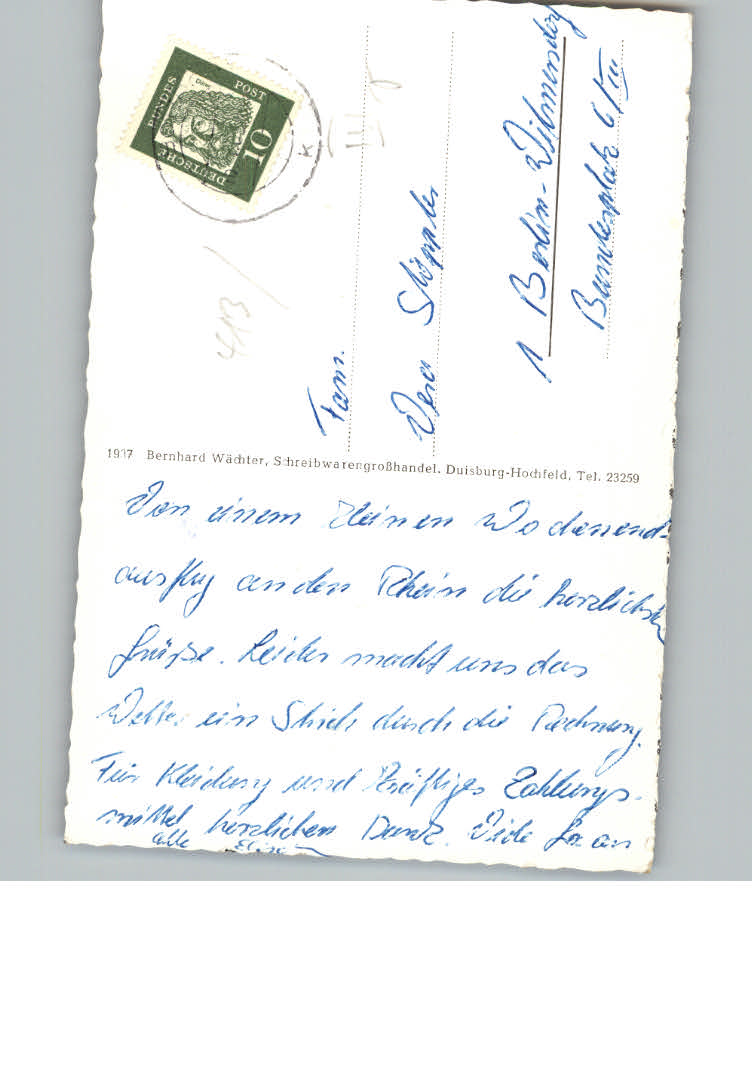 Dürer
DEUTSCHE BUNDESPOST
10
K
413
Fam.
Vera
1 Berlin-Wilmersdorf
Bundesplatz 6/III
1937 Bernhard Wächter, Schreibwarengroßhandel, Duisburg-Hochfeld, Tel. 23259
Von einem kleinen Wochenend-
ausflug an den Rhein die herzlichsten
Grüße. Leider macht uns das
Wetter ein Strich durch die Rechnung.
Für Kleidung und kräftiges Zahlungs-
mittel herzlichen Dank. Viele Gr. an
alle